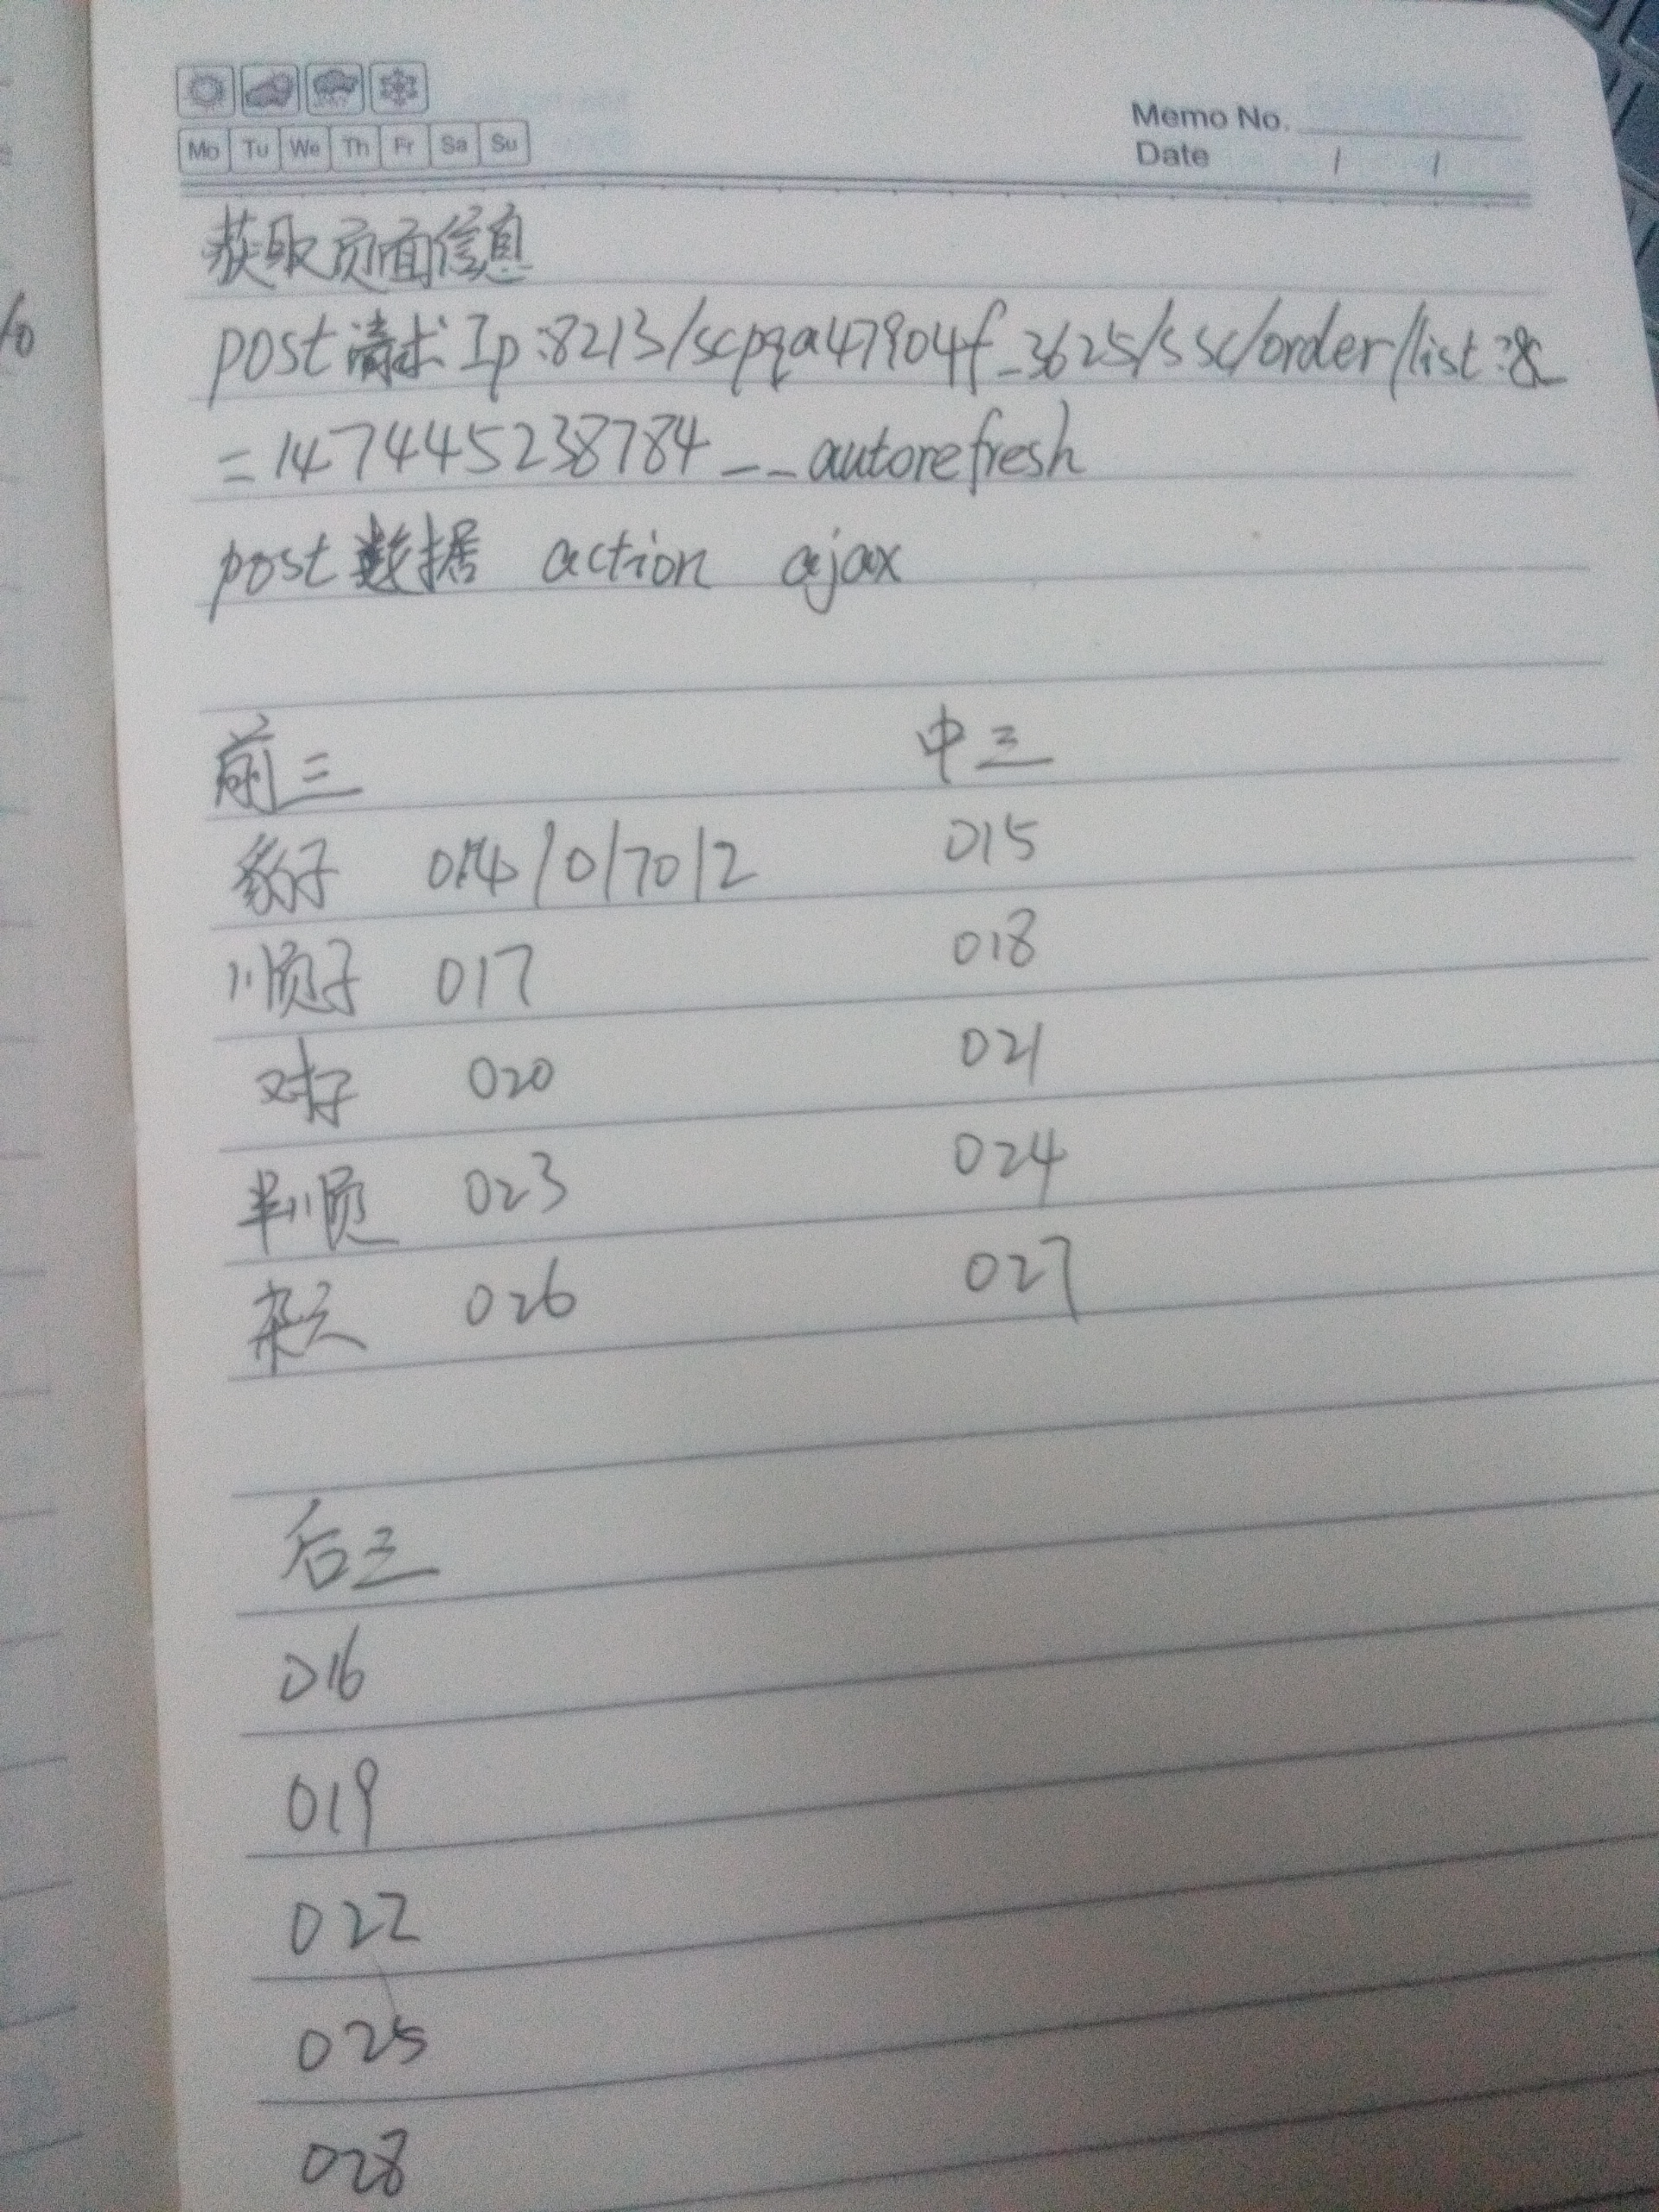 Mo Tu We Th Fr Sa Su
Memo No.
Date / /
获取页面信息
post请求 Ip:8213/scpqa47904f_3625/ssc/order/list?&
=1474445238784__autorefresh
post数据 action ajax
前三 中三
豹子 014/0/70/2 015
顺子 017 018
对子 020 021
半顺 023 024
杂六 026 027
后三
016
019
022
025
028